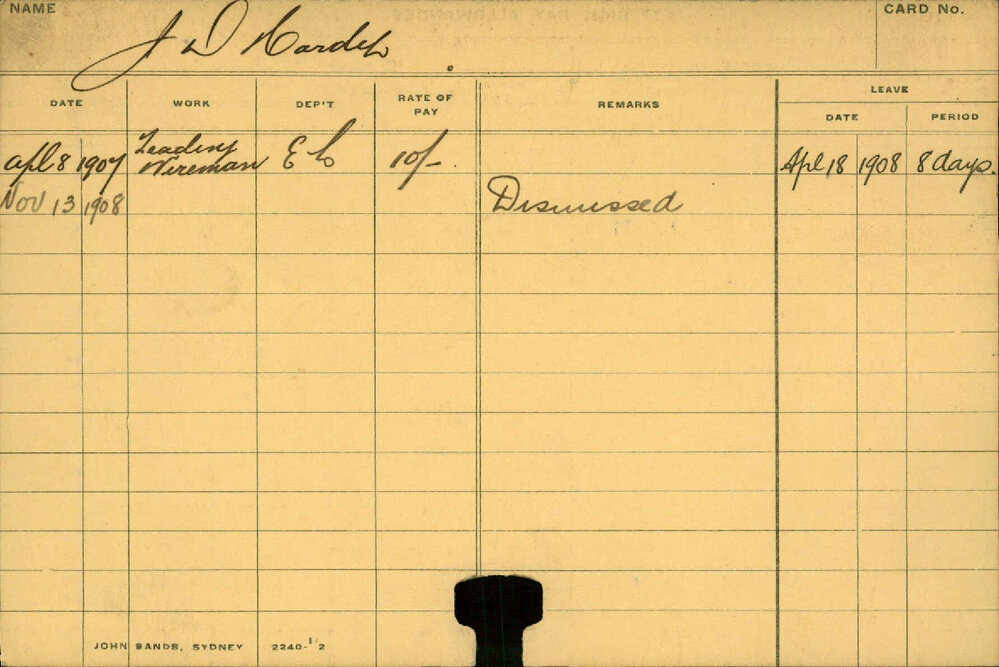 NAME
J D
CARD No.
DATE WORK DEP'T RATE OF PAY REMARKS LEAVE
DATE PERIOD
Apl 8 1907 Leading Wireman E L 10/- Apl 18 1908 8 days.
Nov 13 1908 Dismissed
JOHN SANDS, SYDNEY 2240-1/2